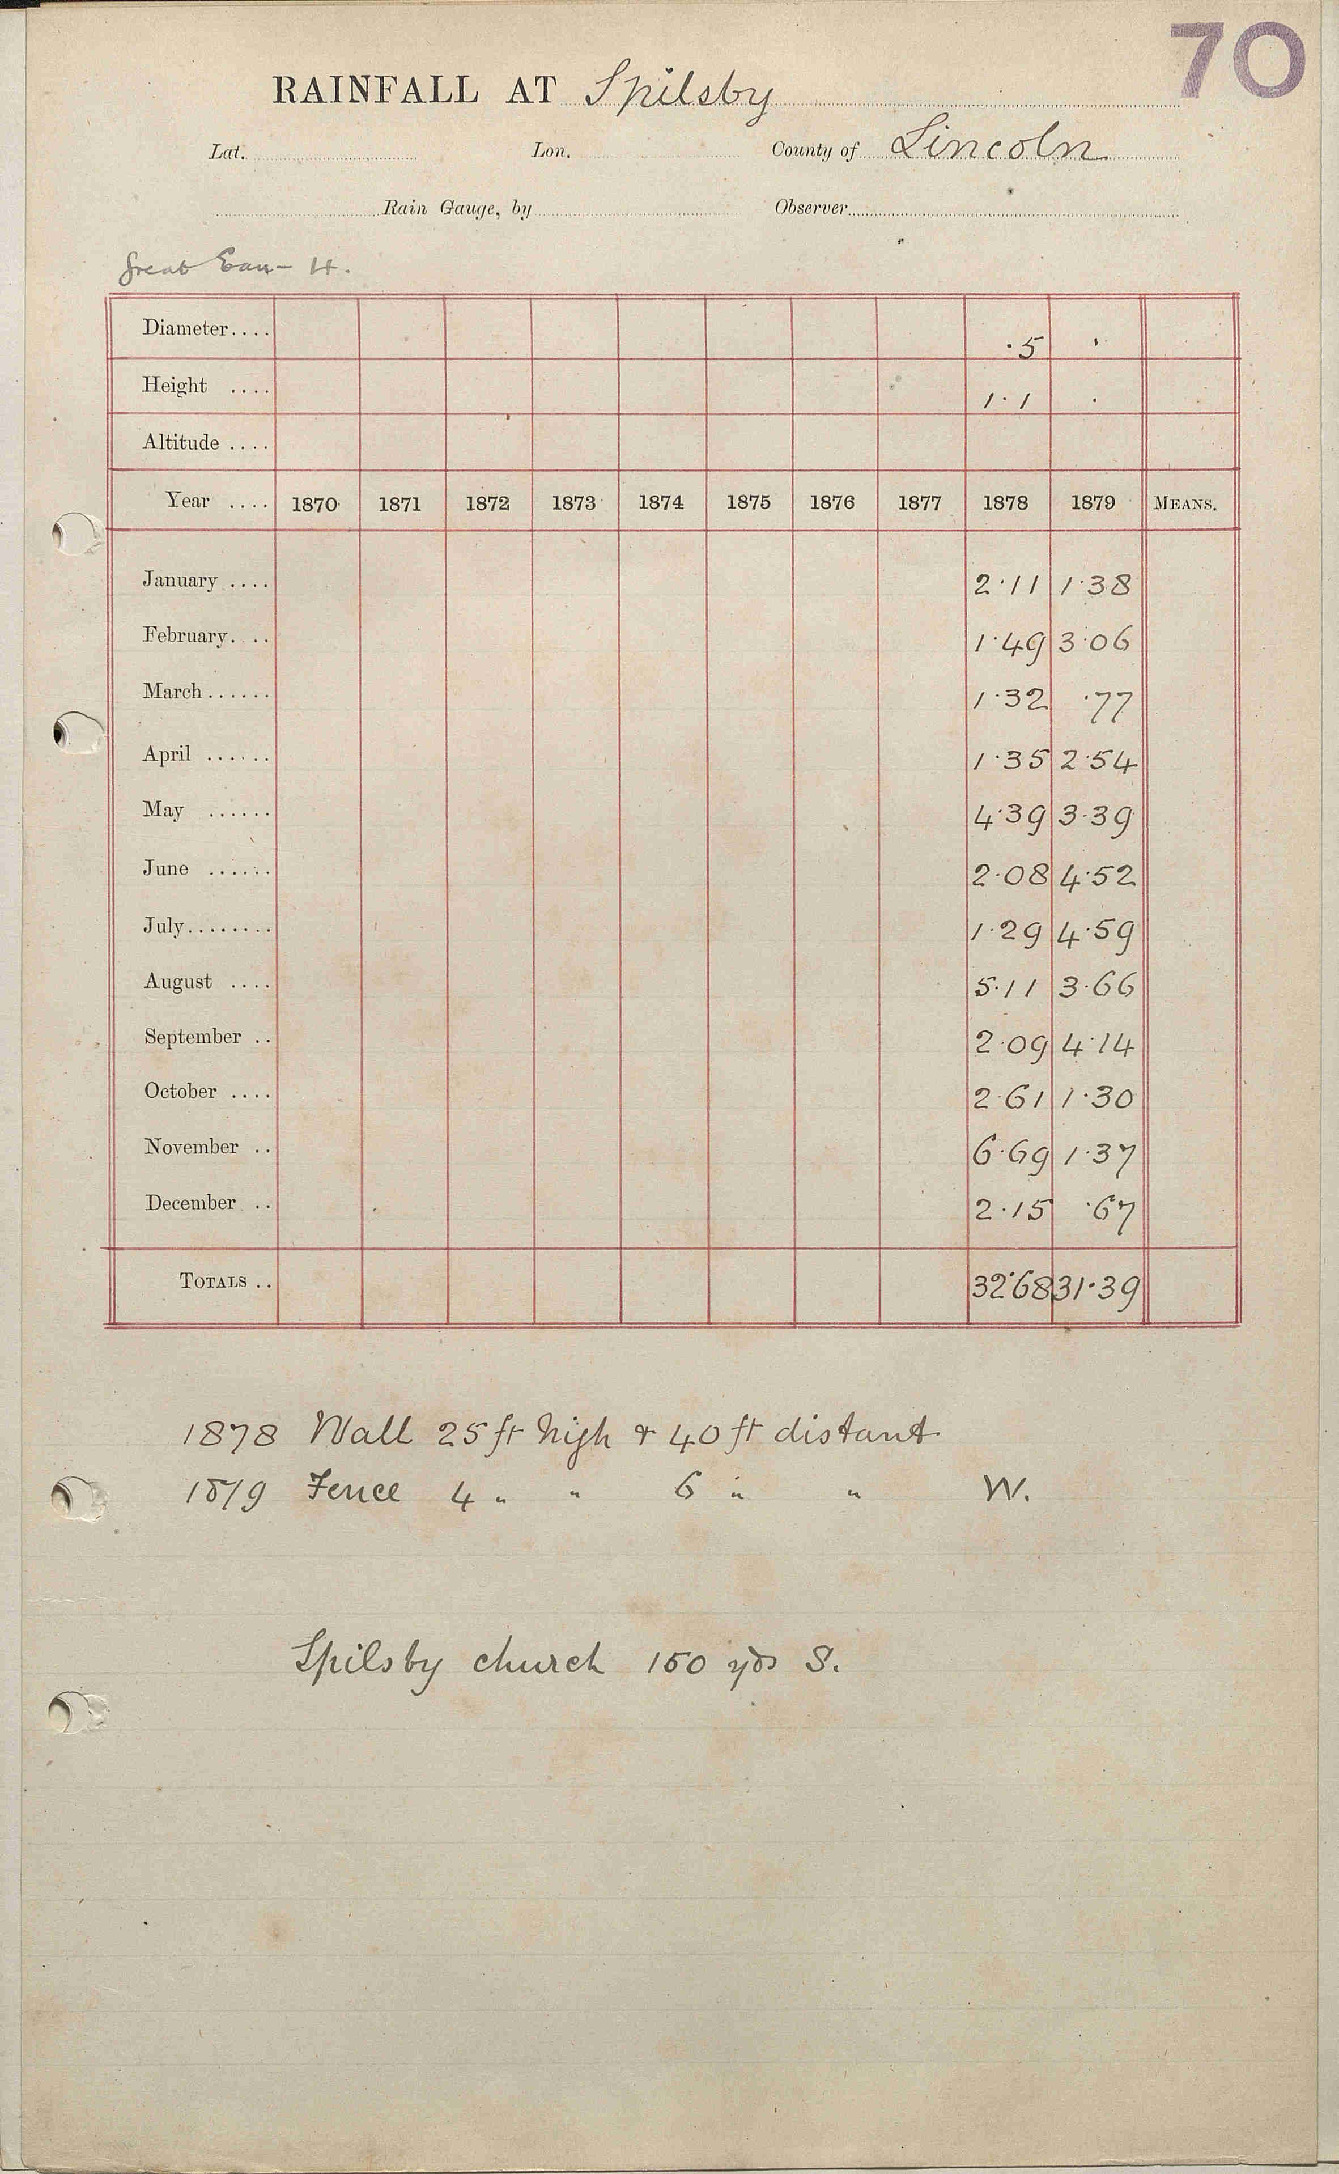 70
RAINFALL AT Spilsby
Lat. Lon. County of Lincoln
Rain Gauge, by Observer
Great Eau - H.
Diameter.... ·5 '
Height .... 1·1 ·
Altitude ....
Year .... 1870 1871 1872 1873 1874 1875 1876 1877 1878 1879 MEANS.
January .... 2·11 1·38
February. .. 1·49 3·06
March ...... 1·32 ·77
April ...... 1·35 2·54
May ...... 4·39 3·39
June ...... 2·08 4·52
July........ 1·29 4·59
August .... 5·11 3·66
September .. 2·09 4·14
October .... 2·61 1·30
November .. 6·69 1·37
December .. 2·15 ·67
TOTALS .. 32·68 31·39
1878 Wall 25 ft high & 40 ft distant
1879 Fence 4 " " 6 " " W.
Spilsby church 150 yds S.